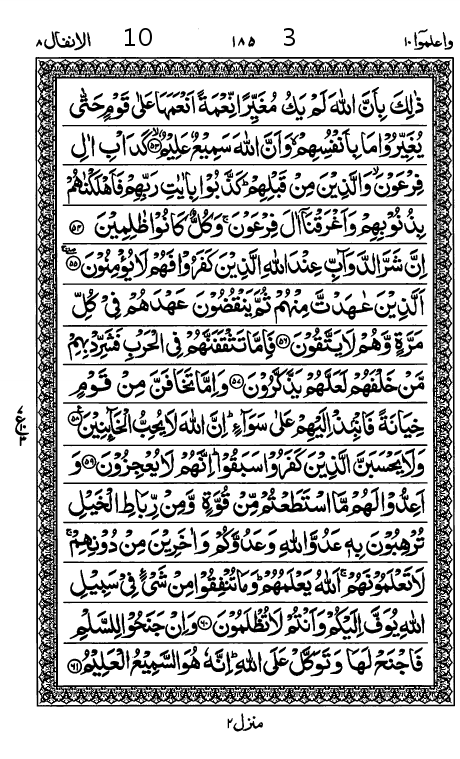 واعلموآ ١٠ 3 ١٨٥ 10 الانفال ٨
ذٰلِكَ بِاَنَّ اللّٰهَ لَمْ يَكُ مُغَيِّرًا نِّعْمَةً اَنْعَمَهَا عَلٰى قَوْمٍ حَتّٰى
يُغَيِّرُوْا مَا بِاَنْفُسِهِمْ ۙ وَاَنَّ اللّٰهَ سَمِيْعٌ عَلِيْمٌ ۙ ﴿٥٣﴾ كَدَاْبِ اٰلِ
فِرْعَوْنَ ۙ وَالَّذِيْنَ مِنْ قَبْلِهِمْ ؕ كَذَّبُوْا بِاٰيٰتِ رَبِّهِمْ فَاَهْلَكْنٰهُمْ
بِذُنُوْبِهِمْ وَاَغْرَقْنَاۤ اٰلَ فِرْعَوْنَ ۚ وَكُلٌّ كَانُوْا ظٰلِمِيْنَ ﴿٥٤﴾
اِنَّ شَرَّ الدَّوَآبِّ عِنْدَ اللّٰهِ الَّذِيْنَ كَفَرُوْا فَهُمْ لَا يُؤْمِنُوْنَ ﴿٥٥﴾
اَلَّذِيْنَ عٰهَدْتَّ مِنْهُمْ ثُمَّ يَنْقُضُوْنَ عَهْدَهُمْ فِيْ كُلِّ
مَرَّةٍ وَّهُمْ لَا يَتَّقُوْنَ ﴿٥٦﴾ فَاِمَّا تَثْقَفَنَّهُمْ فِى الْحَرْبِ فَشَرِّدْ بِهِمْ
مَّنْ خَلْفَهُمْ لَعَلَّهُمْ يَذَّكَّرُوْنَ ﴿٥٧﴾ وَاِمَّا تَخَافَنَّ مِنْ قَوْمٍ
خِيَانَةً فَانْۢبِذْ اِلَيْهِمْ عَلٰى سَوَآءٍ ؕ اِنَّ اللّٰهَ لَا يُحِبُّ الْخَآئِنِيْنَ ﴿٥٨﴾
وَلَا يَحْسَبَنَّ الَّذِيْنَ كَفَرُوْا سَبَقُوْا ؕ اِنَّهُمْ لَا يُعْجِزُوْنَ ﴿٥٩﴾ وَ
اَعِدُّوْا لَهُمْ مَّا اسْتَطَعْتُمْ مِّنْ قُوَّةٍ وَّمِنْ رِّبَاطِ الْخَيْلِ
تُرْهِبُوْنَ بِهٖ عَدُوَّ اللّٰهِ وَعَدُوَّكُمْ وَاٰخَرِيْنَ مِنْ دُوْنِهِمْ ۚ
لَا تَعْلَمُوْنَهُمْ ۚ اَللّٰهُ يَعْلَمُهُمْ ؕ وَمَا تُنْفِقُوْا مِنْ شَيْءٍ فِيْ سَبِيْلِ
اللّٰهِ يُوَفَّ اِلَيْكُمْ وَاَنْتُمْ لَا تُظْلَمُوْنَ ﴿٦٠﴾ وَاِنْ جَنَحُوْا لِلسَّلْمِ
فَاجْنَحْ لَهَا وَتَوَكَّلْ عَلَى اللّٰهِ ؕ اِنَّهٗ هُوَ السَّمِيْعُ الْعَلِيْمُ ﴿٦١﴾
منزل ٢